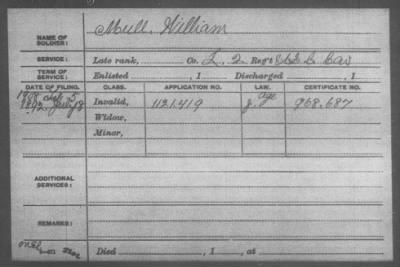 NAME OF SOLDIER: Mull, William
SERVICE: Late rank, Co. L, 2 Reg't Cav
TERM OF SERVICE: Enlisted , 1 Discharged , 1
DATE OF FILING. CLASS. APPLICATION NO. LAW. CERTIFICATE NO.
1892 July Invalid, 1121419 J. age 968.687
Widow,
Minor,
ADDITIONAL SERVICES:
REMARKS:
Died , 1 , at